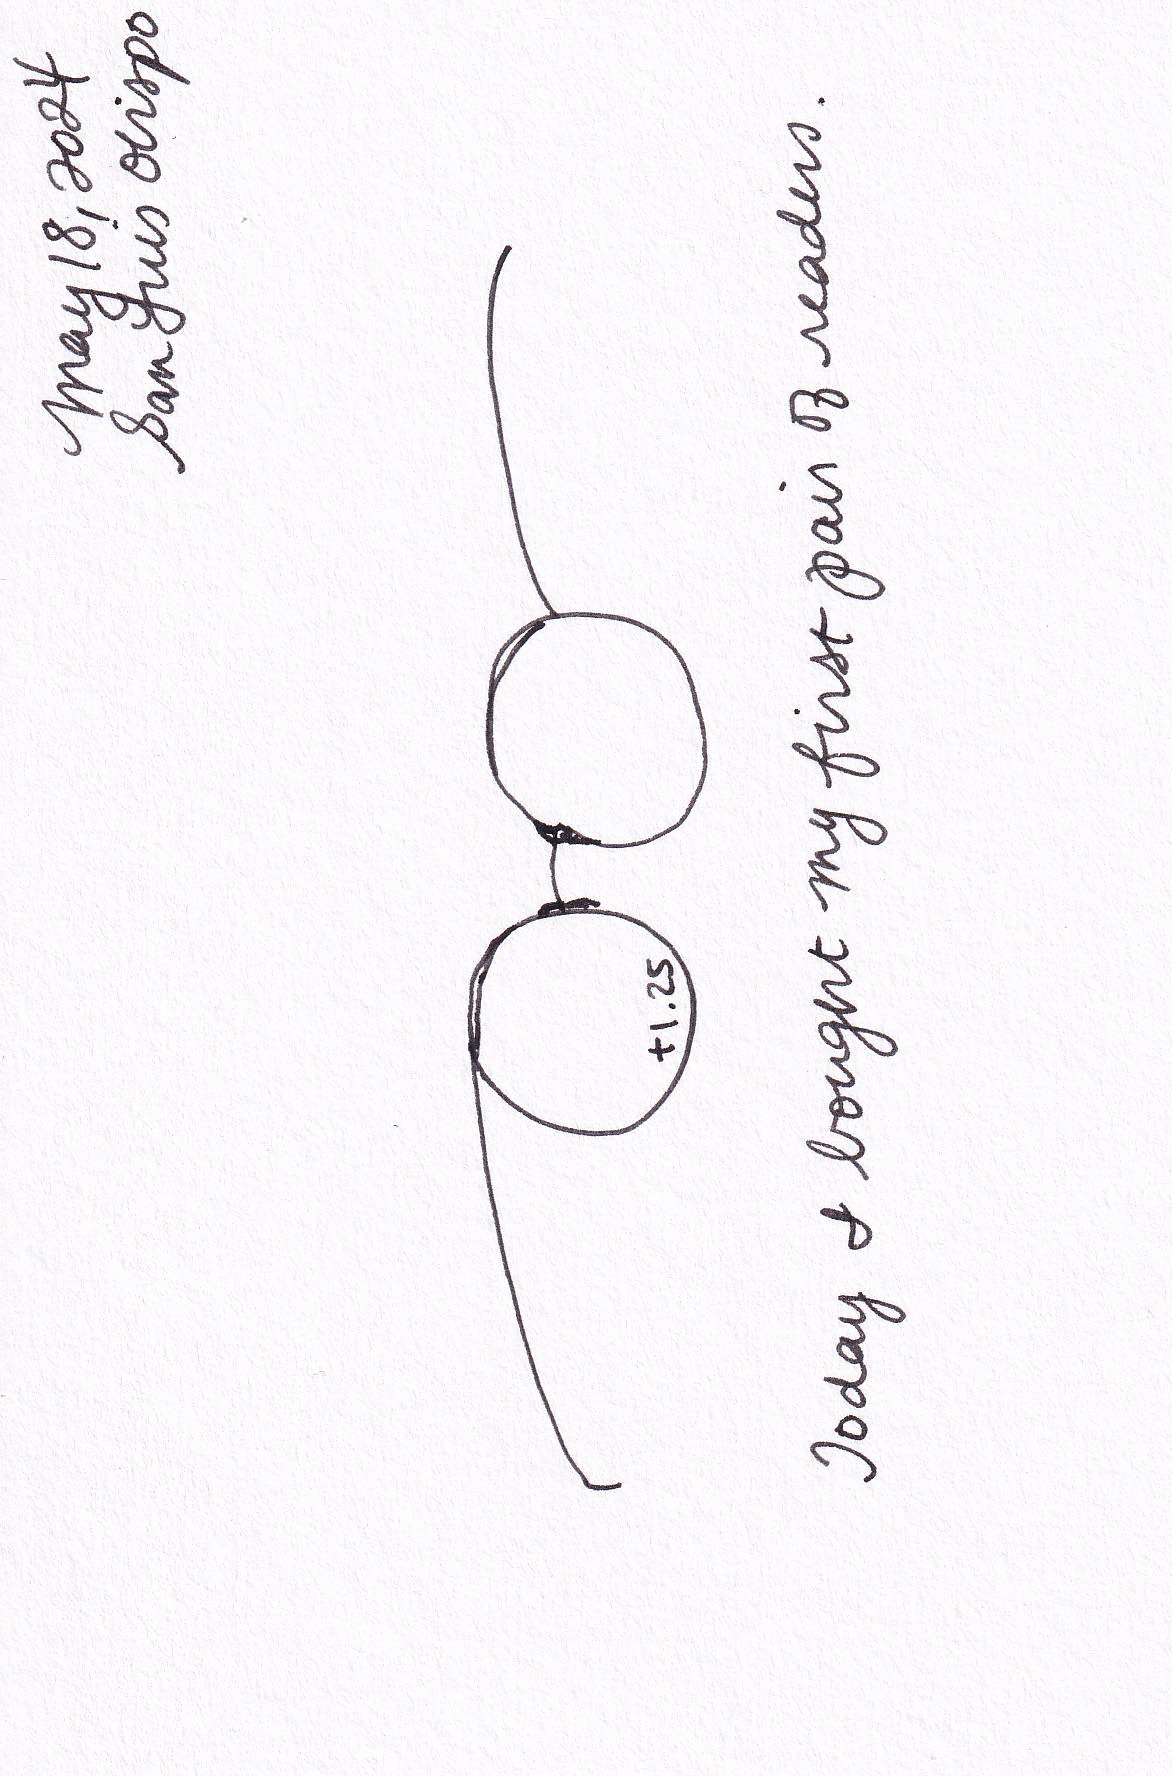 May 18, 2024
San Luis Obispo
+1.25
Today I bought my first pair of readers.